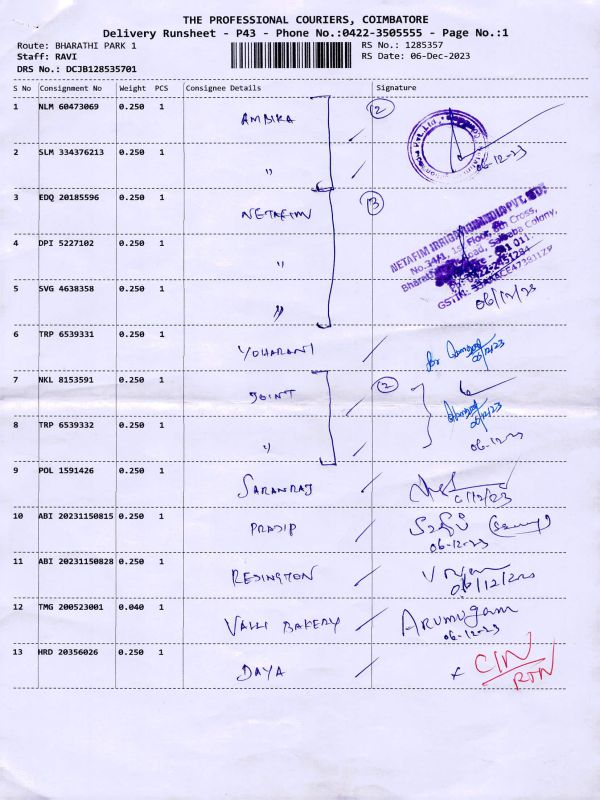 THE PROFESSIONAL COURIERS, COIMBATORE
Delivery Runsheet - P43 - Phone No.:0422-3505555 - Page No.:1
Route: BHARATHI PARK 1 RS No.: 1285357
Staff: RAVI RS Date: 06-Dec-2023
DRS No.: DCJB128535701
S No Consignment No Weight PCS Consignee Details Signature
1 NLM 60473069 0.250 1 AMBIKA 2
2 SLM 334376213 0.250 1 " 06-12-23
3 EDQ 20185596 0.250 1 NETAFIM 3
NETAFIM IRRIGATION INDIA PVT. LTD.
No.34/1, 1st Floor, 8th Cross,
Road, Saibaba Colony,
4 DPI 5227102 0.250 1 "
5 SVG 4638358 0.250 1 " 06/12/23
6 TRP 6539331 0.250 1 YOHARANI for 06/12/23
7 NKL 8153591 0.250 1 JOINT 2 06/12/23
8 TRP 6539332 0.250 1 " 06-12-23
9 POL 1591426 0.250 1 SARANRAJ 6/12/23
10 ABI 20231150815 0.250 1 PRADIP 06-12-23
11 ABI 20231150828 0.250 1 REDINGTON 06/12/23
12 TMG 200523001 0.040 1 VALLI BAKERY ARUMUGAM
06-12-23
13 HRD 20356026 0.250 1 DAYA x CIN
RTN